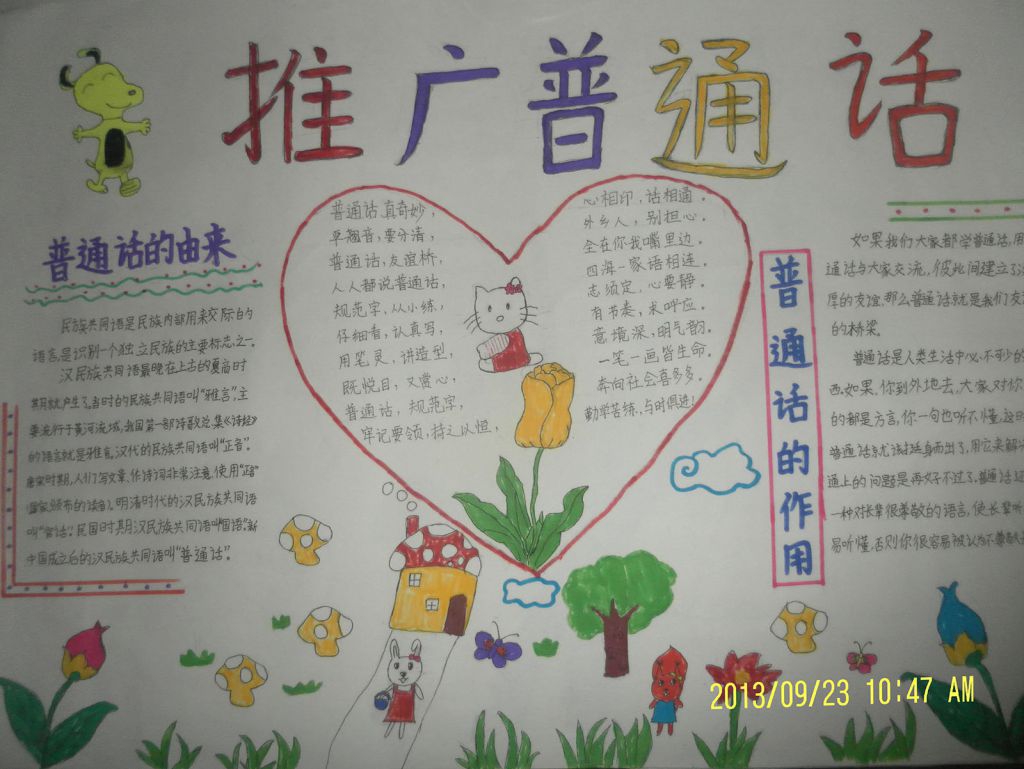 推广普通话
普通话的由来
民族共同语是民族内部用来交际的
语言,是识别一个独立民族的主要标志之一。
汉民族共同语最晚在上古的夏商时
期就产生了,当时的民族共同语叫“雅言”,主
要流行于黄河流域,我国第一部诗歌总集《诗经》
的语言就是雅言,汉代的民族共同语叫“正音”。
唐宋时期,人们写文章、作诗词非常注意使用“正音”
(国家颁布的读音)。明清时代的汉民族共同语
叫“官话”。民国时期汉民族共同语叫“国语”。新
中国成立后的汉民族共同语叫“普通话”。
普通话,真奇妙,
卓翘音,要分清,
普通话,友谊桥,
人人都说普通话,
规范字,从小练,
仔细看,认真写,
用笔灵,讲造型,
既悦目,又赏心,
普通话,规范字,
牢记要领,持之以恒,
心相印,话相通。
外乡人,别担心。
全在你我嘴里边。
四海一家语相连。
志须定,心要静。
有节奏,求呼应。
意境深,明气韵。
一笔一画皆生命。
奉向社会喜多多。
勤学苦练,与时俱进!
普通话的作用
如果我们大家都学普通话,用
通话与大家交流,彼此间建立了
厚的友谊,那么普通话就是我们友
的桥梁。
普通话是人类生活中必不可少的
西,如果,你到外地去,大家对你
的都是方言,你一句也听不懂,这时
普通话就该挺身而出了,用它来解
通上的问题是再好不过了,普通话还
一种对长辈很尊敬的语言,使长辈听
易听懂,否则你很容易被认为不尊敬
2013/09/23 10:47 AM